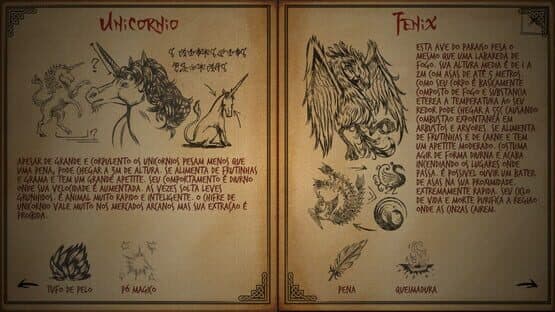 Unicornio
Apesar de grande e corpulento os unicornios pesam menos que
uma pena, pode chegar a 5m de altura. Se alimenta de frutinhas
e grama e tem um grande apetite. Seu comportamento é diurno
onde sua velocidade é aumentada. As vezes solta leves
grunhidos. É animal muito rapido e inteligente. O chifre de
unicornio vale muito nos mercados arcanos mas sua extração é
proibida.
Tufo de pelo
Pó magico
Fenix
Esta ave do paraiso pesa o
mesmo que uma labareda de
fogo. Sua altura media é de 1 a
2m com asas de até 5 metros.
Como seu corpo é basicamente
composto de fogo e substancia
eterea a temperatura ao seu
redor pode chegar a 55c causando
combustão expontanea em
arbustos e arvores. Se alimenta
de frutinhas e de carne e tem
um apetite moderado. Costuma
agir de forma diurna e acaba
incendiando os lugares onde
passa. É possivel ouvir um bater
de asas na sua proximidade.
Extremamente rapida. Seu ciclo
de vida e morte purifica a região
onde as cinzas cairem.
Pena
Queimadura